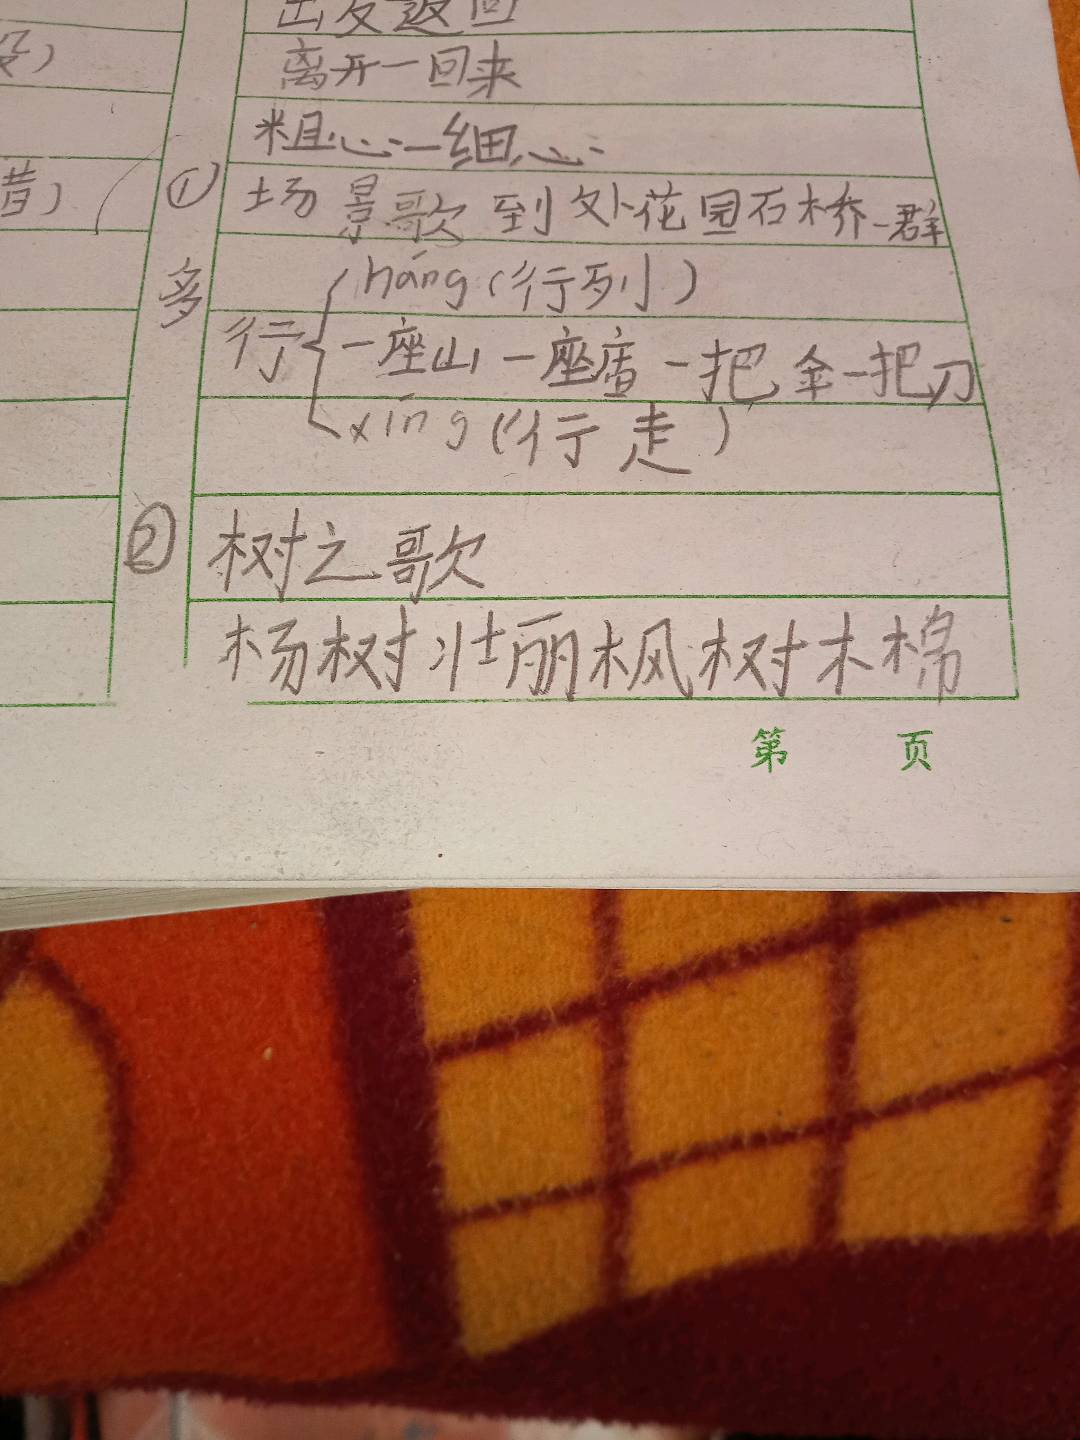 出发返回
离开一回来
粗心一细心
① 场景歌 到处花园石桥一群
多
háng(行列)
行 一座山 一座 一把 一把刀
xíng(行走)
② 树之歌
杨树壮丽枫树木棉
昔)
第 页